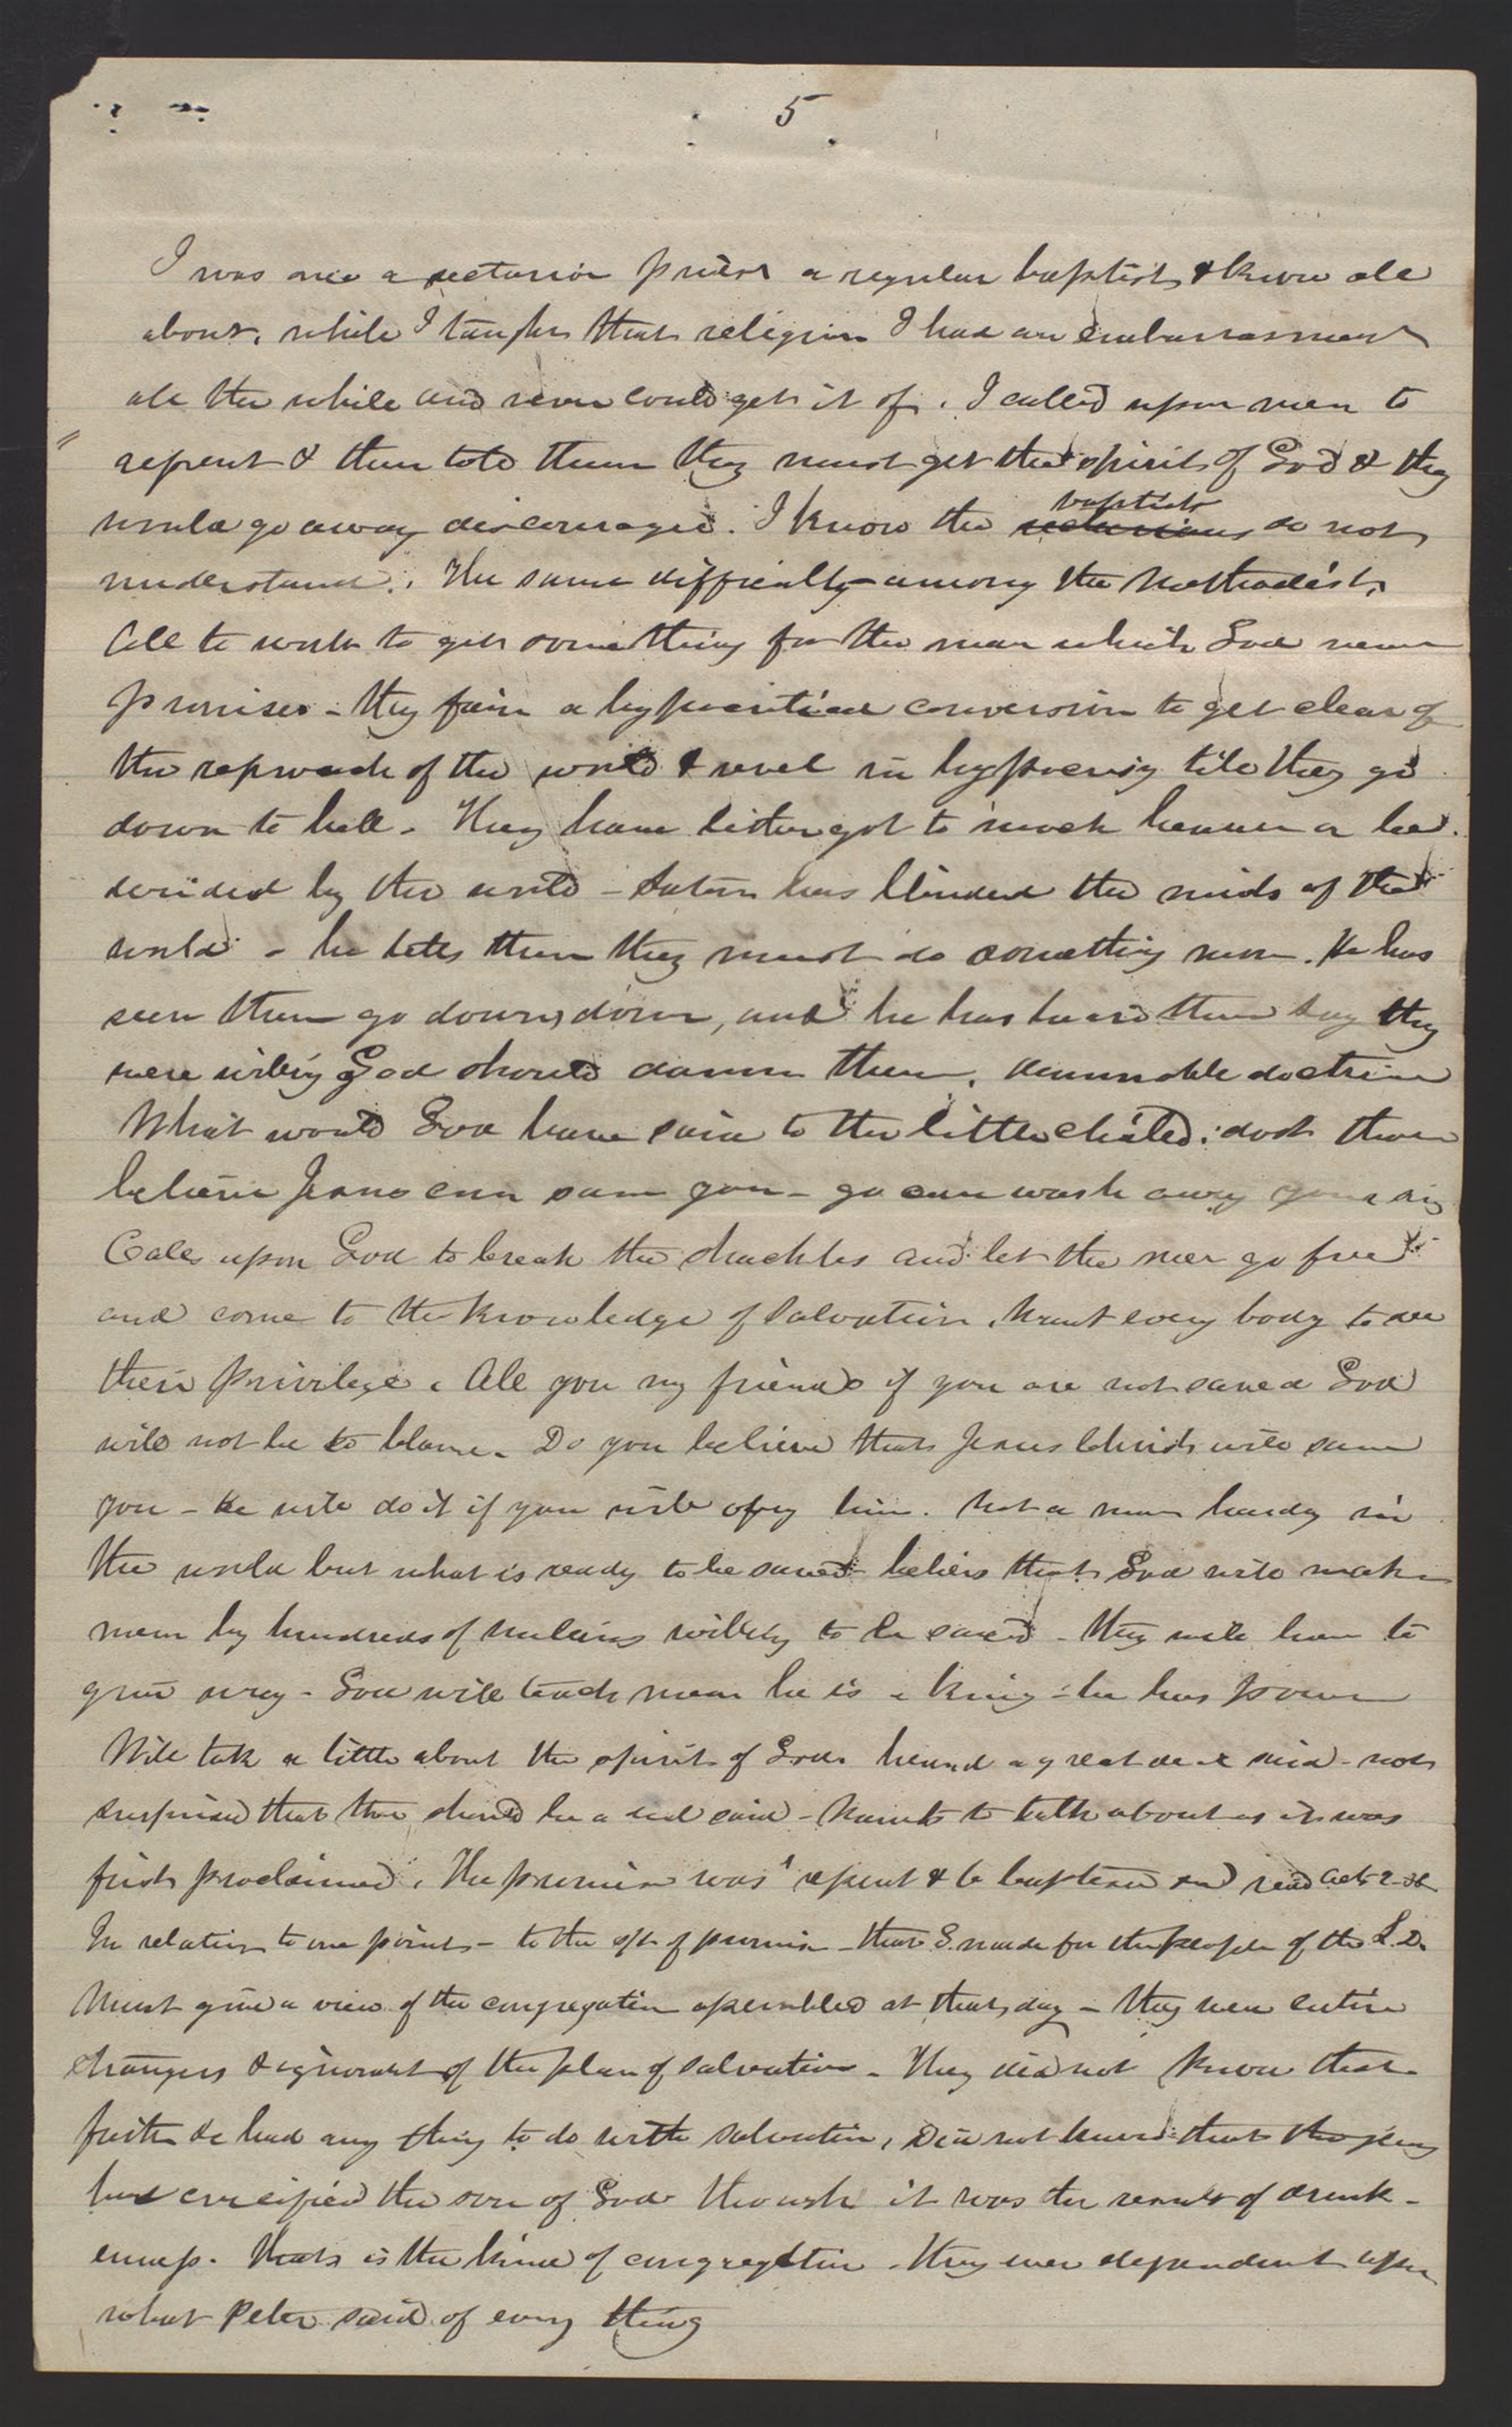 5
I was once a sectarian priest a regular baptist & know all
about, while I taught that religion I had an embarrassment
all the while and never could get it of. I called upon men to
repent & then told them they must get the spirit of God & they
would go away discouraged. I know the baptists sectarians do not
understand. The same difficulty among the Methodists.
All to work to get something for the man which God never
promises - they fain a hypocritical conversion to get clear of
the reproach of the world & revel in hypocrisy till they go
down to hell. They have either got to mock heaven or be
derided by the world - Satan has blinded the minds of the
world - he tells them they must do something more. He has
seen them go down, down, and he has heard them say they
were willing God should damn them. damnable doctrine
What would God have said to the little child: dost thou
believe Jesus can save you - go and wash away your sins
Calls upon God to break the shackles and let the men go free
and come to the knowledge of Salvation. Want every body to see
their privilege. All you my friends if you are not saved God
will not be to blame. Do you believe that Jesus Christ will save
you - he will do it if you will obey him. Not a man hardly in
the world but what is ready to be saved - believes that God will make
men by hundreds of millions willing to be saved - they will have to
give way - God will teach men he is a king - he has power
Will talk a little about the spirit of God. heard a great deal said - not
surprised that there should be a deal said - Wants to talk about as it was
first proclaimed. The promise was repent & be baptised and read Acts 2-38
In relation to one point - to the gift of promise - that G. made for the people of the L.D.
Must give a view of the congregation assembled at that day - they were entire
strangers & ignorant of the plan of salvation. They did not know that
faith &c had any thing to do with salvation, Did not know that they
had crucified the son of God though it was the result of drunk-
enness. That is the kind of congregation. they were dependent upon
what Peter said of every thing